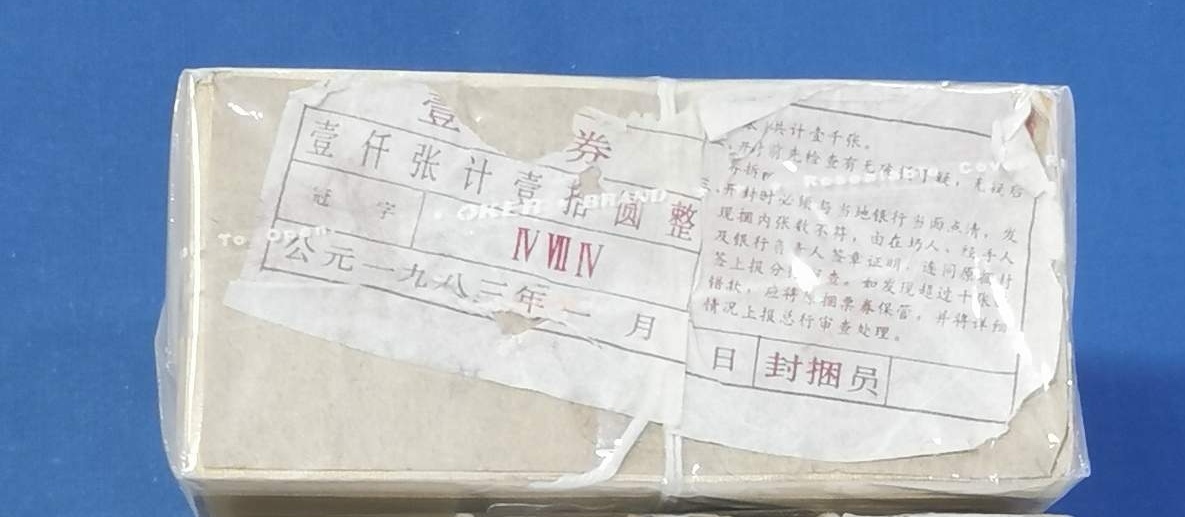 壹
券
壹仟张计壹拾圆整
冠字
ⅣⅦⅣ
公元一九八三年一月
共计壹千张。
开封时必须与当地银行当面点清，发
现捆内张数不符，由在场人、经手人
及银行负责人签章证明，连同原封
签上报分行审查。如发现超过十张
错款，应将原捆票券保管，并将详细
情况上报总行审查处理。
日 封捆员
OKER BRAND
To Open